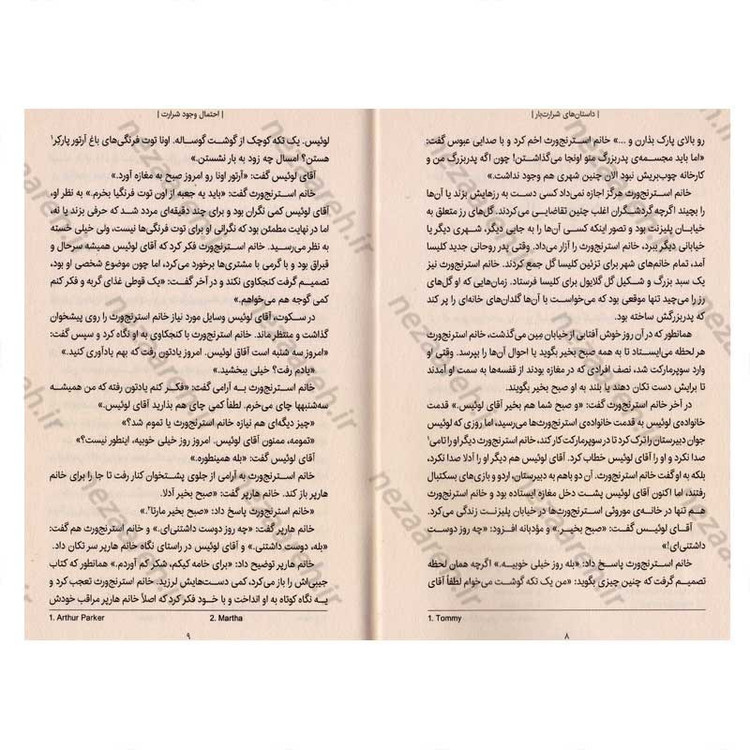 | داستان‌های شرارت‌بار |
رو بالای پارک بذارن و ...» خانم استرنج‌ورث اخم کرد و با صدایی عبوس گفت:
«اما باید مجسمه‌ی پدربزرگ منو اونجا می‌ذاشتن! چون اگه پدربزرگ من و
کارخانه چوب‌بریش نبود الان چنین شهری هم وجود نداشت.»
خانم استرنج‌ورث هرگز اجازه نمی‌داد کسی دست به رزهایش بزند یا آن‌ها
را بچیند اگرچه گردشگران اغلب چنین تقاضایی می‌کردند. گل‌های رز متعلق به
خیابان پلیزنت بود و تصور اینکه کسی آن‌ها را به جایی دیگر، شهری دیگر یا
خیابانی دیگر ببرد، خانم استرنج‌ورث را آزار می‌داد. وقتی پدر روحانی جدید کلیسا
آمد، تمام خانم‌های شهر برای تزئین کلیسا گل جمع کردند. خانم استرنج‌ورث نیز
یک سبد بزرگ و شکیل گل گلایول برای کلیسا فرستاد. زمان‌هایی که او گل‌های
رز را می‌چید تنها موقعی بود که می‌خواست با آن‌ها گلدان‌های خانه‌ای را پر کند
که پدربزرگش ساخته بود.
همانطور که در آن روز خوش آفتابی از خیابان مِین می‌گذشت، خانم استرنج‌ورث
هر لحظه می‌ایستاد تا به همه صبح بخیر بگوید یا احوال آن‌ها را بپرسد. وقتی او
وارد سوپرمارکت شد، نصف افرادی که در مغازه بودند از قفسه‌ها به سمت او آمدند
تا برایش دست تکان دهند یا بلند به او صبح بخیر بگویند.
در آخر خانم استرنج‌ورث گفت: «و صبح شما هم بخیر آقای لوئیس.» قدمت
خانواده‌ی لوئیس به قدمت خانواده‌ی استرنج‌ورث‌ها می‌رسید، اما روزی که لوئیس
جوان دبیرستان را ترک کرد تا در سوپرمارکت کار کند، خانم استرنج‌ورث دیگر او را تامی¹
صدا نکرد و او را آقای لوئیس خطاب کرد. آقای لوئیس هم دیگر او را آدلا صدا نکرد،
بلکه به او گفت خانم استرنج‌ورث. آن دو باهم به دبیرستان، اردو و بازی‌های بسکتبال
رفتند، اما اکنون آقای لوئیس پشت دخل مغازه ایستاده بود و خانم استرنج‌ورث
هم تنها در خانه‌ی موروثی استرنج‌ورث‌ها در خیابان پلیزنت زندگی می‌کرد.
آقای لوئیس گفت: «صبح بخیر.» و مؤدبانه افزود: «چه روز دوست
داشتنی‌ای!»
خانم استرنج‌ورث پاسخ داد: «بله روز خیلی خوبیه.» اگرچه همان لحظه
تصمیم گرفت که چنین چیزی بگوید: «من یک تکه گوشت می‌خوام لطفاً آقای
1. Tommy
۸
| احتمال وجود شرارت |
لوئیس. یک تکه کوچک از گوشت گوساله. اونا توت فرنگی‌های باغ آرتور پارکر¹
هستن؟ امسال چه زود به بار نشستن.»
آقای لوئیس گفت: «آرتور اونا رو امروز صبح به مغازه آورد.»
خانم استرنج‌ورث گفت: «باید یه جعبه از اون توت فرنگیا بخرم.» به نظر او،
آقای لوئیس کمی نگران بود و برای چند دقیقه‌ای مردد شد که حرفی بزند یا نه،
اما در نهایت مطمئن بود که نگرانی او برای توت فرنگی‌ها نیست، ولی خیلی خسته
به نظر می‌رسید. خانم استرنج‌ورث فکر کرد که آقای لوئیس همیشه سرحال و
قبراق بود و با گرمی با مشتری‌ها برخورد می‌کرد، اما چون موضوع شخصی او بود،
تصمیم گرفت کنجکاوی نکند و در آخر گفت: «یک قوطی غذای گربه و فکر کنم
کمی گوجه هم می‌خواهم.»
در سکوت، آقای لوئیس وسایل مورد نیاز خانم استرنج‌ورث را روی پیشخوان
گذاشت و منتظر ماند. خانم استرنج‌ورث با کنجکاوی به او نگاه کرد و سپس گفت:
«امروز سه شنبه است آقای لوئیس. امروز یادتون رفت که بهم یادآوری کنید.»
«یادم رفت؟ خیلی ببخشید.»
خانم استرنج‌ورث به آرامی گفت: «فکر کنم یادتون رفته که من همیشه
سه‌شنبها چای می‌خرم. لطفاً کمی چای هم بذارید آقای لوئیس.»
«چیز دیگه‌ای هم نیازه خانم استرنج‌ورث یا تموم شد؟»
«تمومه، ممنون آقای لوئیس. امروز روز خیلی خوبیه، اینطور نیست؟»
آقای لوئیس گفت: «بله همینطوره.»
خانم استرنج‌ورث به آرامی از جلوی پشتخوان کنار رفت تا جا را برای خانم
هارپر باز کند. خانم هارپر گفت: «صبح بخیر آدلا.
«خانم استرنج‌ورث پاسخ داد: «صبح بخیر مارتا².»
خانم هارپر گفت: «چه روز دوست داشتنی‌ای.» و خانم استرنج‌ورث هم گفت:
«بله، دوست داشتنی.» و آقای لوئیس در راستای نگاه خانم هارپر سر تکان داد.
خانم هارپر توضیح داد: «برای خامه کیکم، شکر کم آوردم.» همانطور که کتاب
جیبی‌اش را باز می‌کرد، کمی دست‌هایش لرزید. خانم استرنج‌ورث تعجب کرد و
یه نگاه کوتاه به او انداخت و با خود فکر کرد که اصلاً خانم هارپر مراقب خودش
1. Arthur Parker 2. Martha
۹
nezaareh.ir